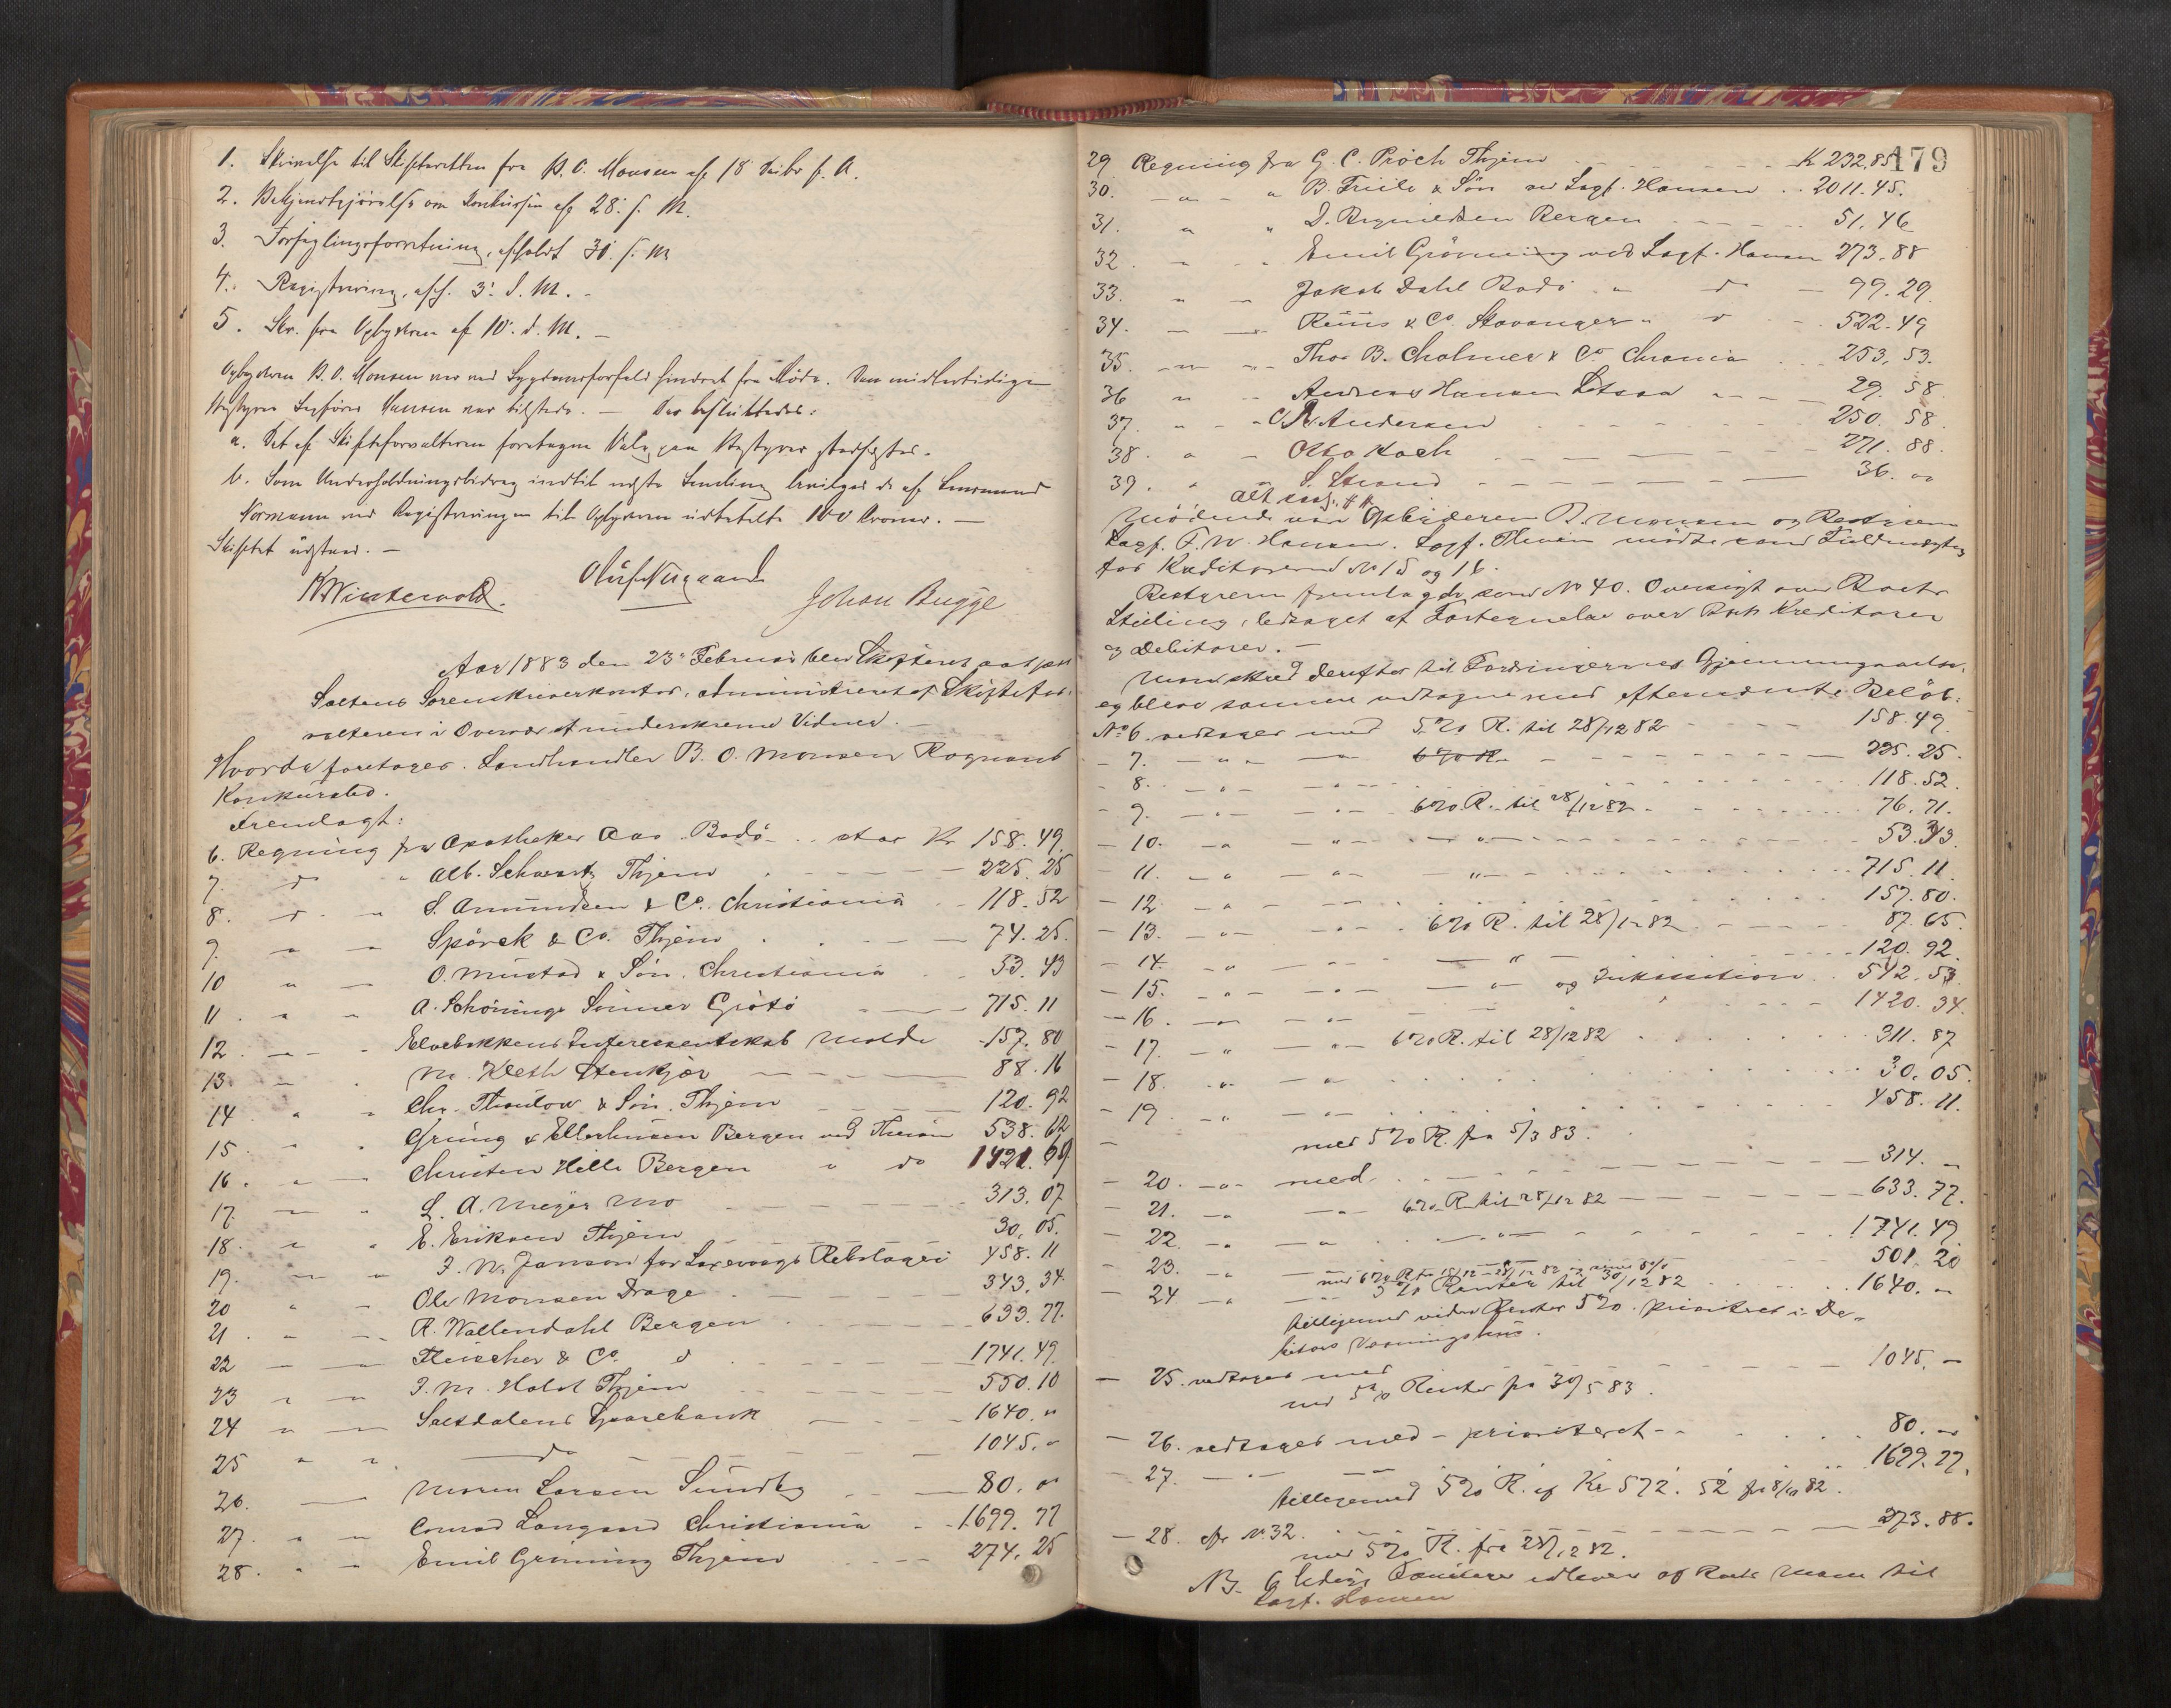 1. Skrivelse til Skifteretten fra B. O. Monsen af 18 Decbr f. A.
2. Bekjendtgjörelse om Konkursen af 28. f. M.
3. Forseglingsforretning, afholdt 30. f. M
4. Registrering, afh. 3. d. M. -
5. Skr. fra Opbyderen af 10. d. M. -
Opbyderen B. O. Monsen var ved Sygdomsforfald hindret fra Möde. Den midlertidige
Bestyrer Sagförer Hansen var tilstede. - Der besluttedes:
a. Det af Skifteforvalteren foretagne Valg paa Bestyrer stadfæstes.
b. Som Underholdningsbidrag indtil næste Samling bevilges de af Lensmand
Normann ved Registreringen til Opbyderen udbetalte 100 Kroner. -
Skiftet udstaar. -
K Winterwold. Oluf Nygaard Johan Bugge
Aar 1883 den 23 Februar blev Skifteret sat paa
Saltens Sorenskriverkontor, administreret af Skiftefor-
valteren i Overvær af underskrevne Vidner. -
Hvorda foretoges. Landhandler B. O. Monsen Rognans
Konkursbo.
Fremlagt:
6. Regning fra Apotheker Aas Bodö .. stor Kr 158. 49.
7. do " Alb. Schwartz Thjem 225. 25
8. do " S. Amundsen & Co. Christiania 118. 52
9. " Spörck & Co. Thjem 74. 25.
10 " O. Mustad & Sön. Christiania 53. 43
11. " " A. Schönings Sönner Grötö 715. 11
12. " " Elvebakkens Interessentskab Molde 157. 80
13. " M. Kleth Stenkjær 88. 16
14 " " Chr. Thaulow & Sön. Thjem 120. 92
15 " Grung & Ellerhusen Bergen ved Thesen 538. 62
16. " Christen Hille Bergen " do 1421. 69
17. " L. A. Meyer Mo 313. 07
18. " " E. Eriksen Thjem 30. 05.
19. " " J. W. Janson for Laxevaags Rebslageri 458. 11
20 " Ole Monsen Drage 343. 34
21. " R. Wallendahl Bergen 633. 77.
22 " Fleischer & Co. d 1741. 49
23 " " J. M. Holst Thjem 550. 10
24 " Saltdalens Sparebank 1640. "
25 " " do 1045. "
26. Maren Larsen Sundby 80. "
27. " " Conrad Langaard Christiania 1699. 77
28. " " Emil Gröning Thjem 274. 25
179
29. Regning fra G. C. Pröch Thjem K 232. 85
30. " " B. Friele & Sön ved Sagf. Hansen .. 2011. 45.
31. " " D. Brynildsen Bergen 51. 46
32. " " Emil Grönning ved Sagf. Hansen 273. 88
33. " Jakob Dahl Bodö " do 99. 29
34. " Reuss & Co. Stavanger " d 522. 49
35. " Thos B. Cholmer & Co Chrania 253. 53.
36 " " Andreas Hansen 29. 58
37. " " C. R. Andersen 250. 58.
38. " Otto Koch 271. 88.
39. " S. Strand 36. "
Alt
Mödende var Opbyderen B. Monsen og Bestyreren
Sagf. F. W. Hansen. Sagf. Thesen mödte som Fuldmægtig
for Kreditorerne No 15 og 16.
Bestyreren fremlagde som No 40. Oversigt over Boets
Stilling, ledsaget af Fortegnelse over Boets Kreditorer
og Debitorer. -
Man skred derefter til Fordringernes Gjennemgaaelse,
og bleve samme vedtagne med efternævnte Belöb:
No. 6. vedtages med 5% R. til 28/12 82 158. 49.
- 7. - " - 6% R. 225. 25.
- 8. - " 118. 52.
- 9. - " 6% R. til 28/12 82 76. 71.
- 10. - " - " 53. 43.
- 11. - " - " 715. 11.
- 12 - " 157. 80.
- 13. - " - " 6% R. til 28/12 82 87. 65.
- 14. - " - " 120. 92.
- 15. - " - " og Inkassation 542. 53.
- 16. - " - " 1420. 34.
- 17. - " - " 6% R. til 28/12 82 311. 87
- 18. - " - " 30. 05.
- 19 - " - " 458. 11.
med 5% R. fra 5/3 83.
- 20. - " med 314. -
- 21. - " - " 6% R til 28/12 82 633. 77.
- 22 - " - " 1741. 49
- 23. - " 501. 20
- 24 - " 5% Renter til 30/12 82 1640. "
tilligemed videre Renter 5%. prioriteret i De-
bitors Vaaningshus.
- 25. vedtages med 1045. -
med 5% Renter fra 30/5 83.
- 26. vedtages med - prioriteret - 80. "
- 27. - " 1699. 77.
tilligemed 5% R. af Kr 572. 52 fra 8/10 82.
- 28. cfr No. 32. 273. 88.
med 5% R. fra 28/12 82.
NB. 6 ledige udlever af Boets Masse til
Sagf. Hansen